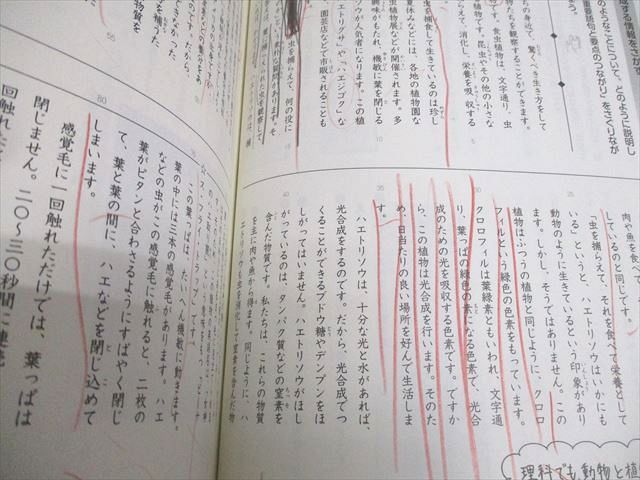 成する情報をさがす
のようなことについて、どのように説明し
重要語句と要点のつながり」をさぐりなが
ちの身近で、驚くべき生き方をして
物たちを観察することができます。
植物です。食虫植物は、文字通り、虫
らえて、消化し、栄養を吸収する
植物です。昆虫やその他の小さな
虫を捕食して生きているのは珍し
夏休みなどには、各地の植物園な
虫植物展などが開催されます。多
物がもたれ、機敏に葉を閉じる
ソウが人気者になります。この植
エトリグサ」や「ハエジゴク」な
園芸店などで市販されることも
虫を捕らえて、何の役に
肉や魚を食べ
しているのと同じです。
「虫を捕らえて、それを食べて栄養として
いる」というと、ハエトリソウはいかにも
動物のように生きているという印象があり
ます。しかし、そうではありません。この
植物はふつうの植物と同じように、クロロ
フィルという緑色の色素をもっています。
クロロフィルは葉緑素ともいわれ、文字通
り、葉っぱの緑色の素になる色素で、光合
成のための光を吸収する色素です。ですか
ら、この植物は光合成を行います。そのた
め、日当たりの良い場所を好んで生活しま
す。
ハエトリソウは、十分な光と水があれば、
光合成をするのです。だから、光合成でつ
くることができるブドウ糖やデンプンをほ
しがってはいません。ハエトリソウがほし
がっているのは、タンパク質などの窒素を
含んだ物質です。私たちは、これらの物質
を主に肉や魚から得ます。同じように、ハ
エトリソウも虫を消化して窒素を含んだ物
理科でも動物と植
この葉っぱは、たいへん機敏に動きます。
葉の中には三本の感覚毛があります。ハエ
などの虫がこの感覚毛に触れると、二枚の
葉がピタンと合わさるようにすばやく閉じ
て、葉と葉の間に、ハエなどを閉じ込めて
しまいます。
感覚毛に一回触れただけでは、葉っぱは
閉じません。二〇～三〇秒間に連続
回触れた